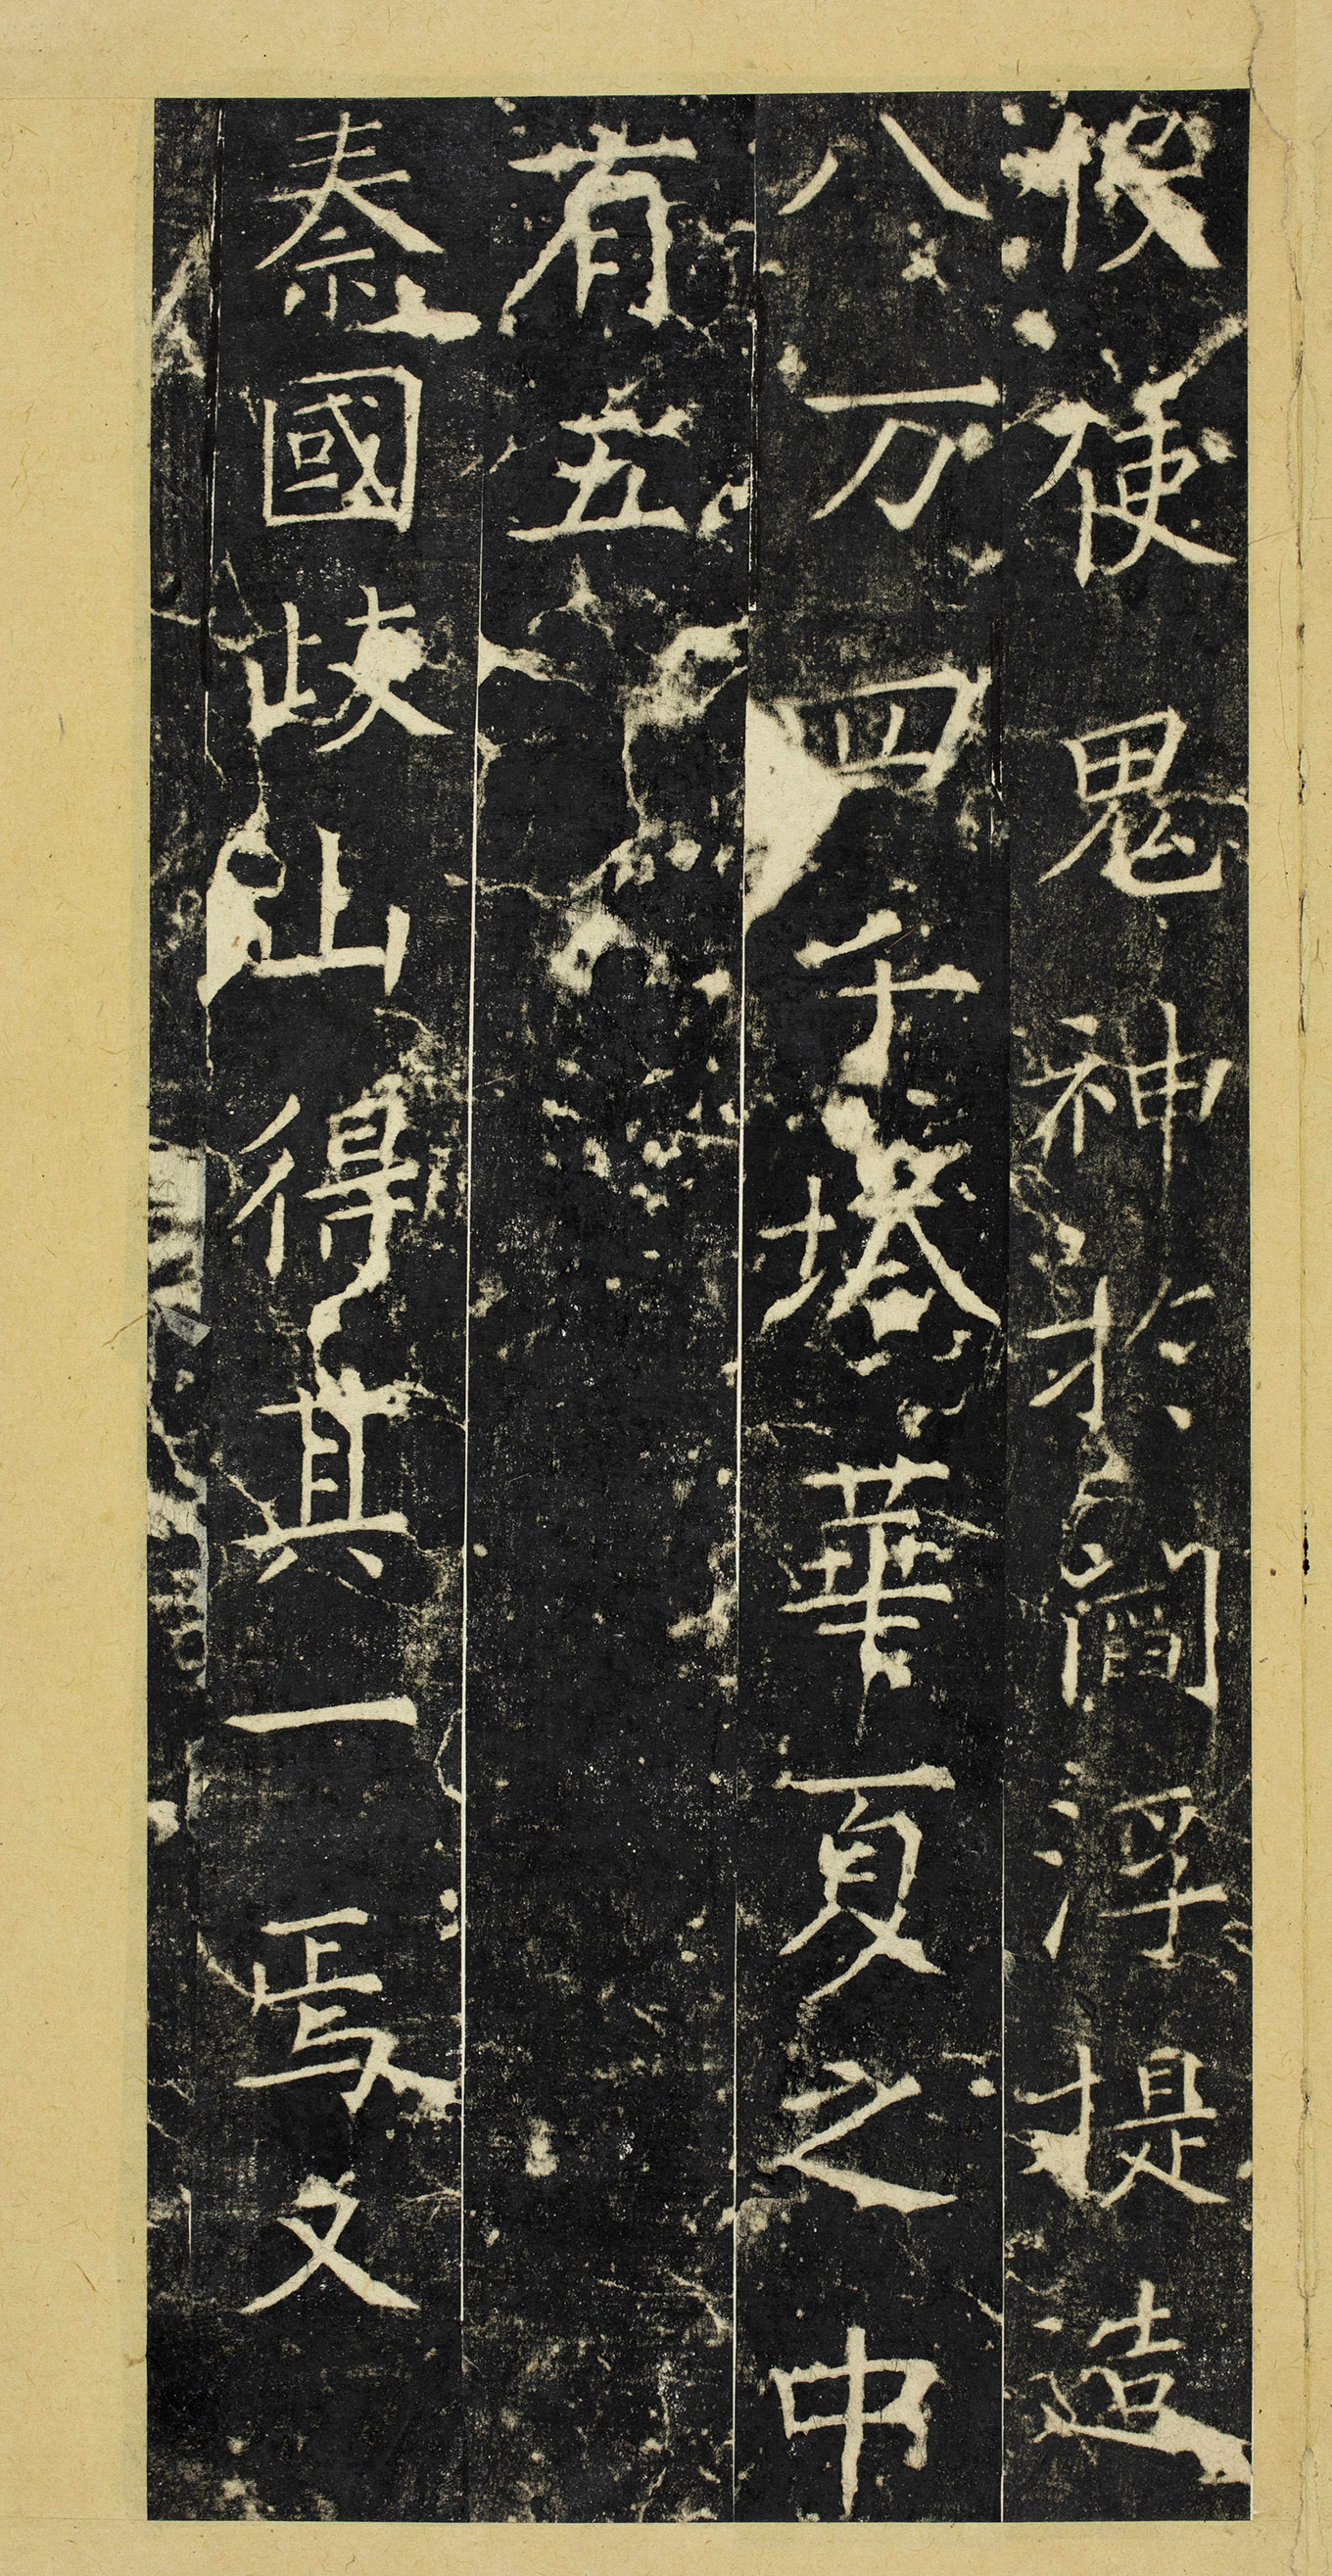 役使鬼神於閻浮提造
八万四千塔華夏之中
有五
秦國歧山得其一焉又